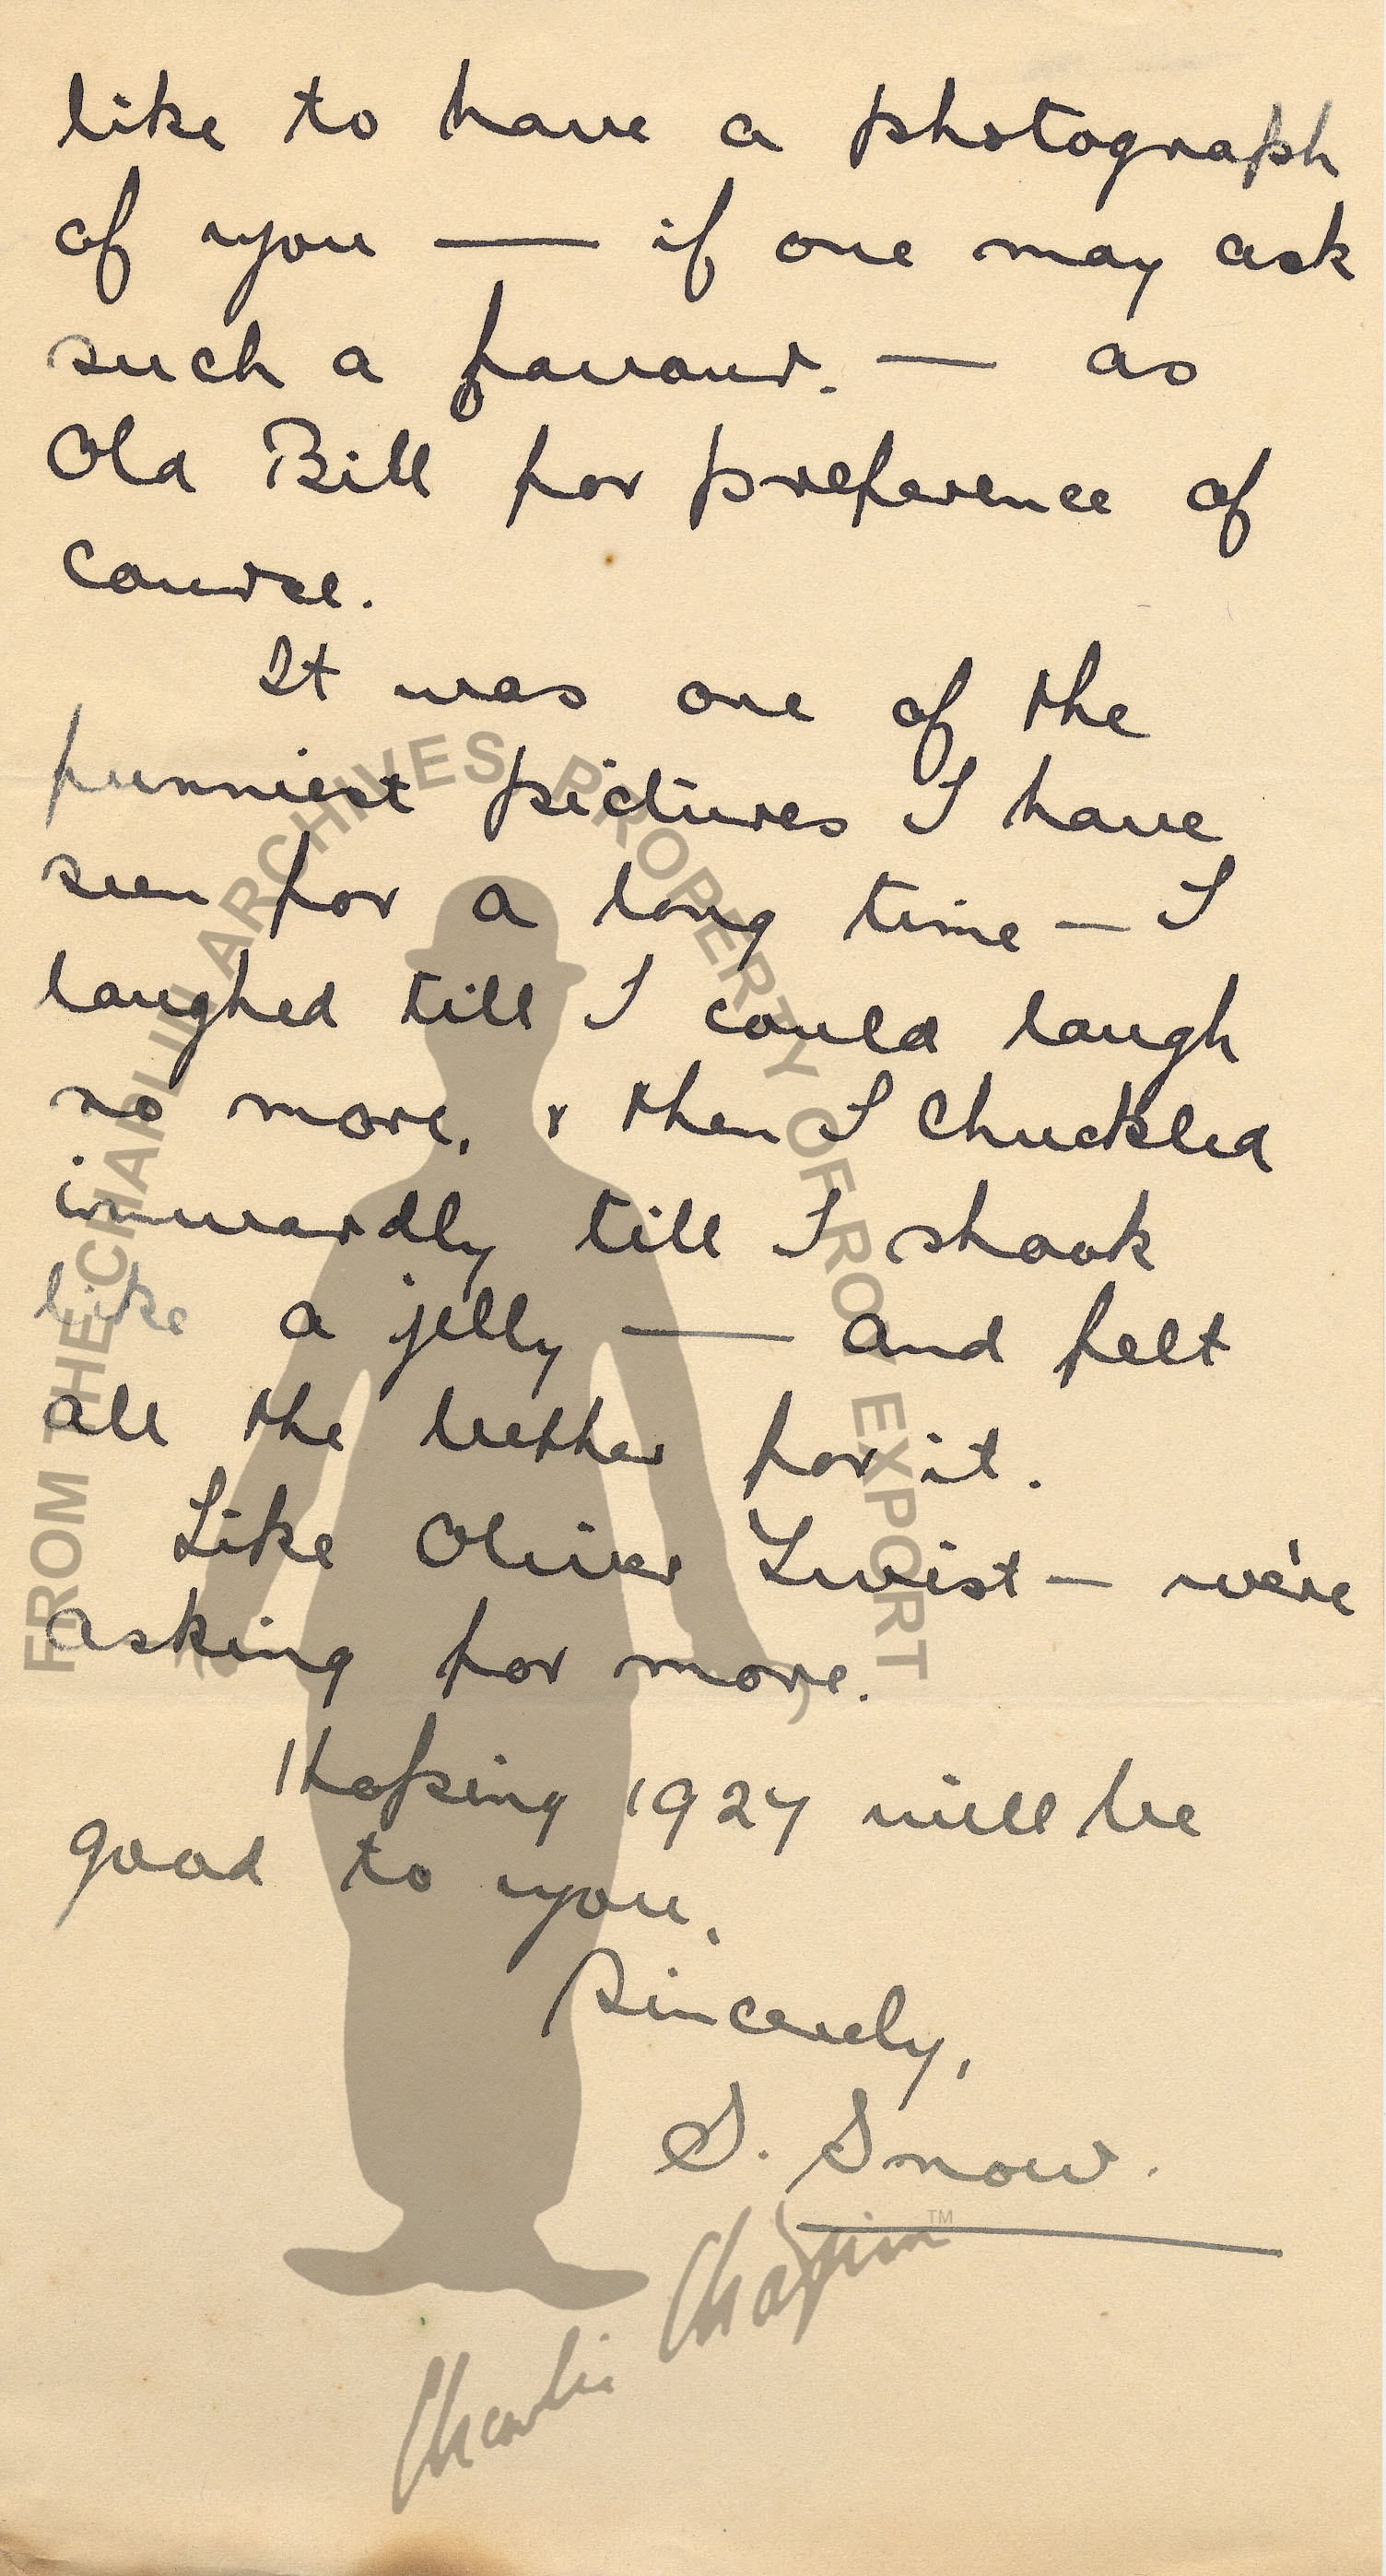 like to have a photograph
of you — if one may ask
such a favour. — as
Old Bill for preference of
course.
It was one of the
funniest pictures I have
seen for a long time — I
laughed till I could laugh
no more, & then I chuckled
inwardly till I shook
like a jelly — and felt
all the better for it.
Like Oliver Twist — we're
asking for more.
Hoping 1927 will be
good to you.
Sincerely,
S. Snow.
FROM THE CHAPLIN ARCHIVES, PROPERTY OF ROY EXPORT
Charlie Chaplin™